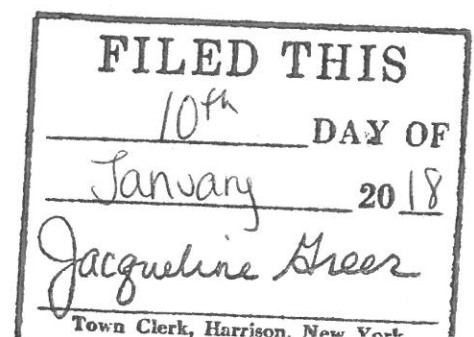 FILED THIS
10th DAY OF
January 2018
Jacqueline Greer
Town Clerk, Harrison, New York